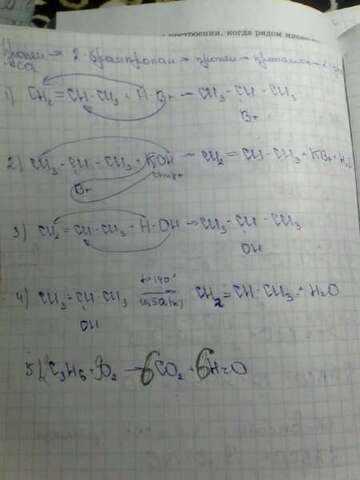 построении, когда рядом
пропен → 2-бромпропан → пропен → пропанол
CO2
1) CH2=CH-CH3 + H-Br → CH3-CH-CH3
Br
2) CH3-CH-CH3 + KOH → CH2=CH-CH3 + KBr + H2
Br спирт
3) CH2=CH-CH3 + H-OH → CH3-CH-CH3
OH
4) CH3-CH-CH3 t>140° H2SO4(к) CH2=CH-CH3 + H2O
OH
5) C3H6 + 9O2 → 6CO2 + 6H2O